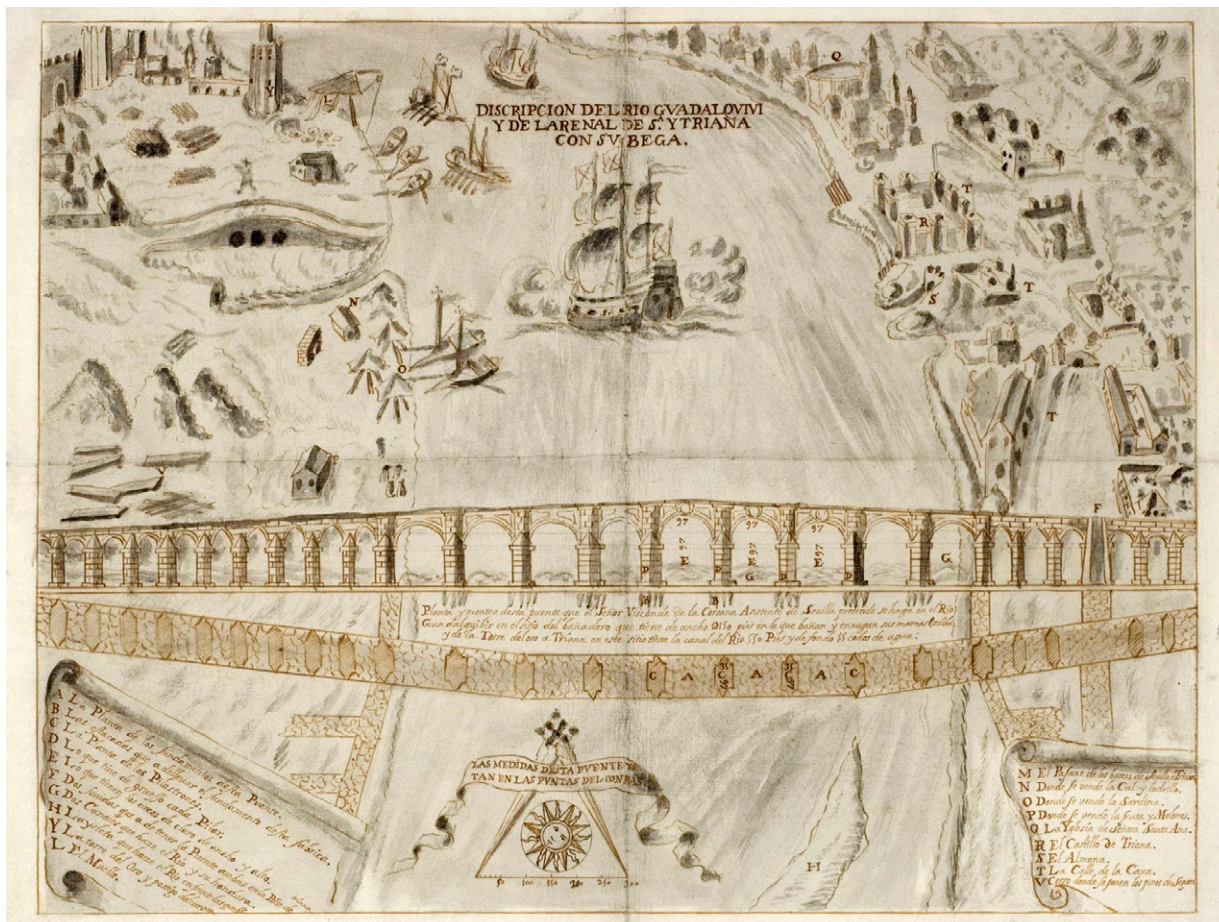 DISCRIPCION DEL RIO GVADALQVIVI
Y DE LARENAL DE Sª. YTRIANA
CON SV BEGA.
Q
Y
L
T
R
S
T
N
O
T
V
F
97
97
97
E 97
E
E 97
G
G
D
D
D
D
B
B
Planta y montea desta puente que el Señor Visconde de la Corsana Asistente de Sevilla pretende se haga en el Rio
Guadalquibir en el sitio del bañadero que tiene de ancho pies en lo que bañan y
y de la Torre del oro a Triana en este sitio tiene la canal del Rio 550 Pies y de fondo 15 codos de agua:
C A C A A C
A La Planta de los fundamentos de la Puente.
B Los que a de llevar el fundamento de la fabrica.
C La Planta de los Pilastrones.
D Lo que tiene de grueso cada Pilar.
E Lo que tienen los arcos de claro de ancho y alto.
F Dos que a de tener la Puente
G Dos Canales que hace el Rio y su
H La ysleta que hace el Rio
Y La torre del Oro y
L El Muelle.
LAS MEDIDAS DESTA PUENTE ES
TAN EN LAS PUNTAS DEL CONPAS
50 100 150 200 250 300
H
M El Pasaxe de los barcos de Sevilla a Triana
N Donde se vende la Cal y ladrillo.
O Donde se vende la Sardina.
P Donde se vende la fruta y Melones.
Q La Yglesia de Señora Santa Ana.
R El Castillo de Triana.
S El Almona.
T La Calle de la Caua.
V donde se ponen los pinos de Segura